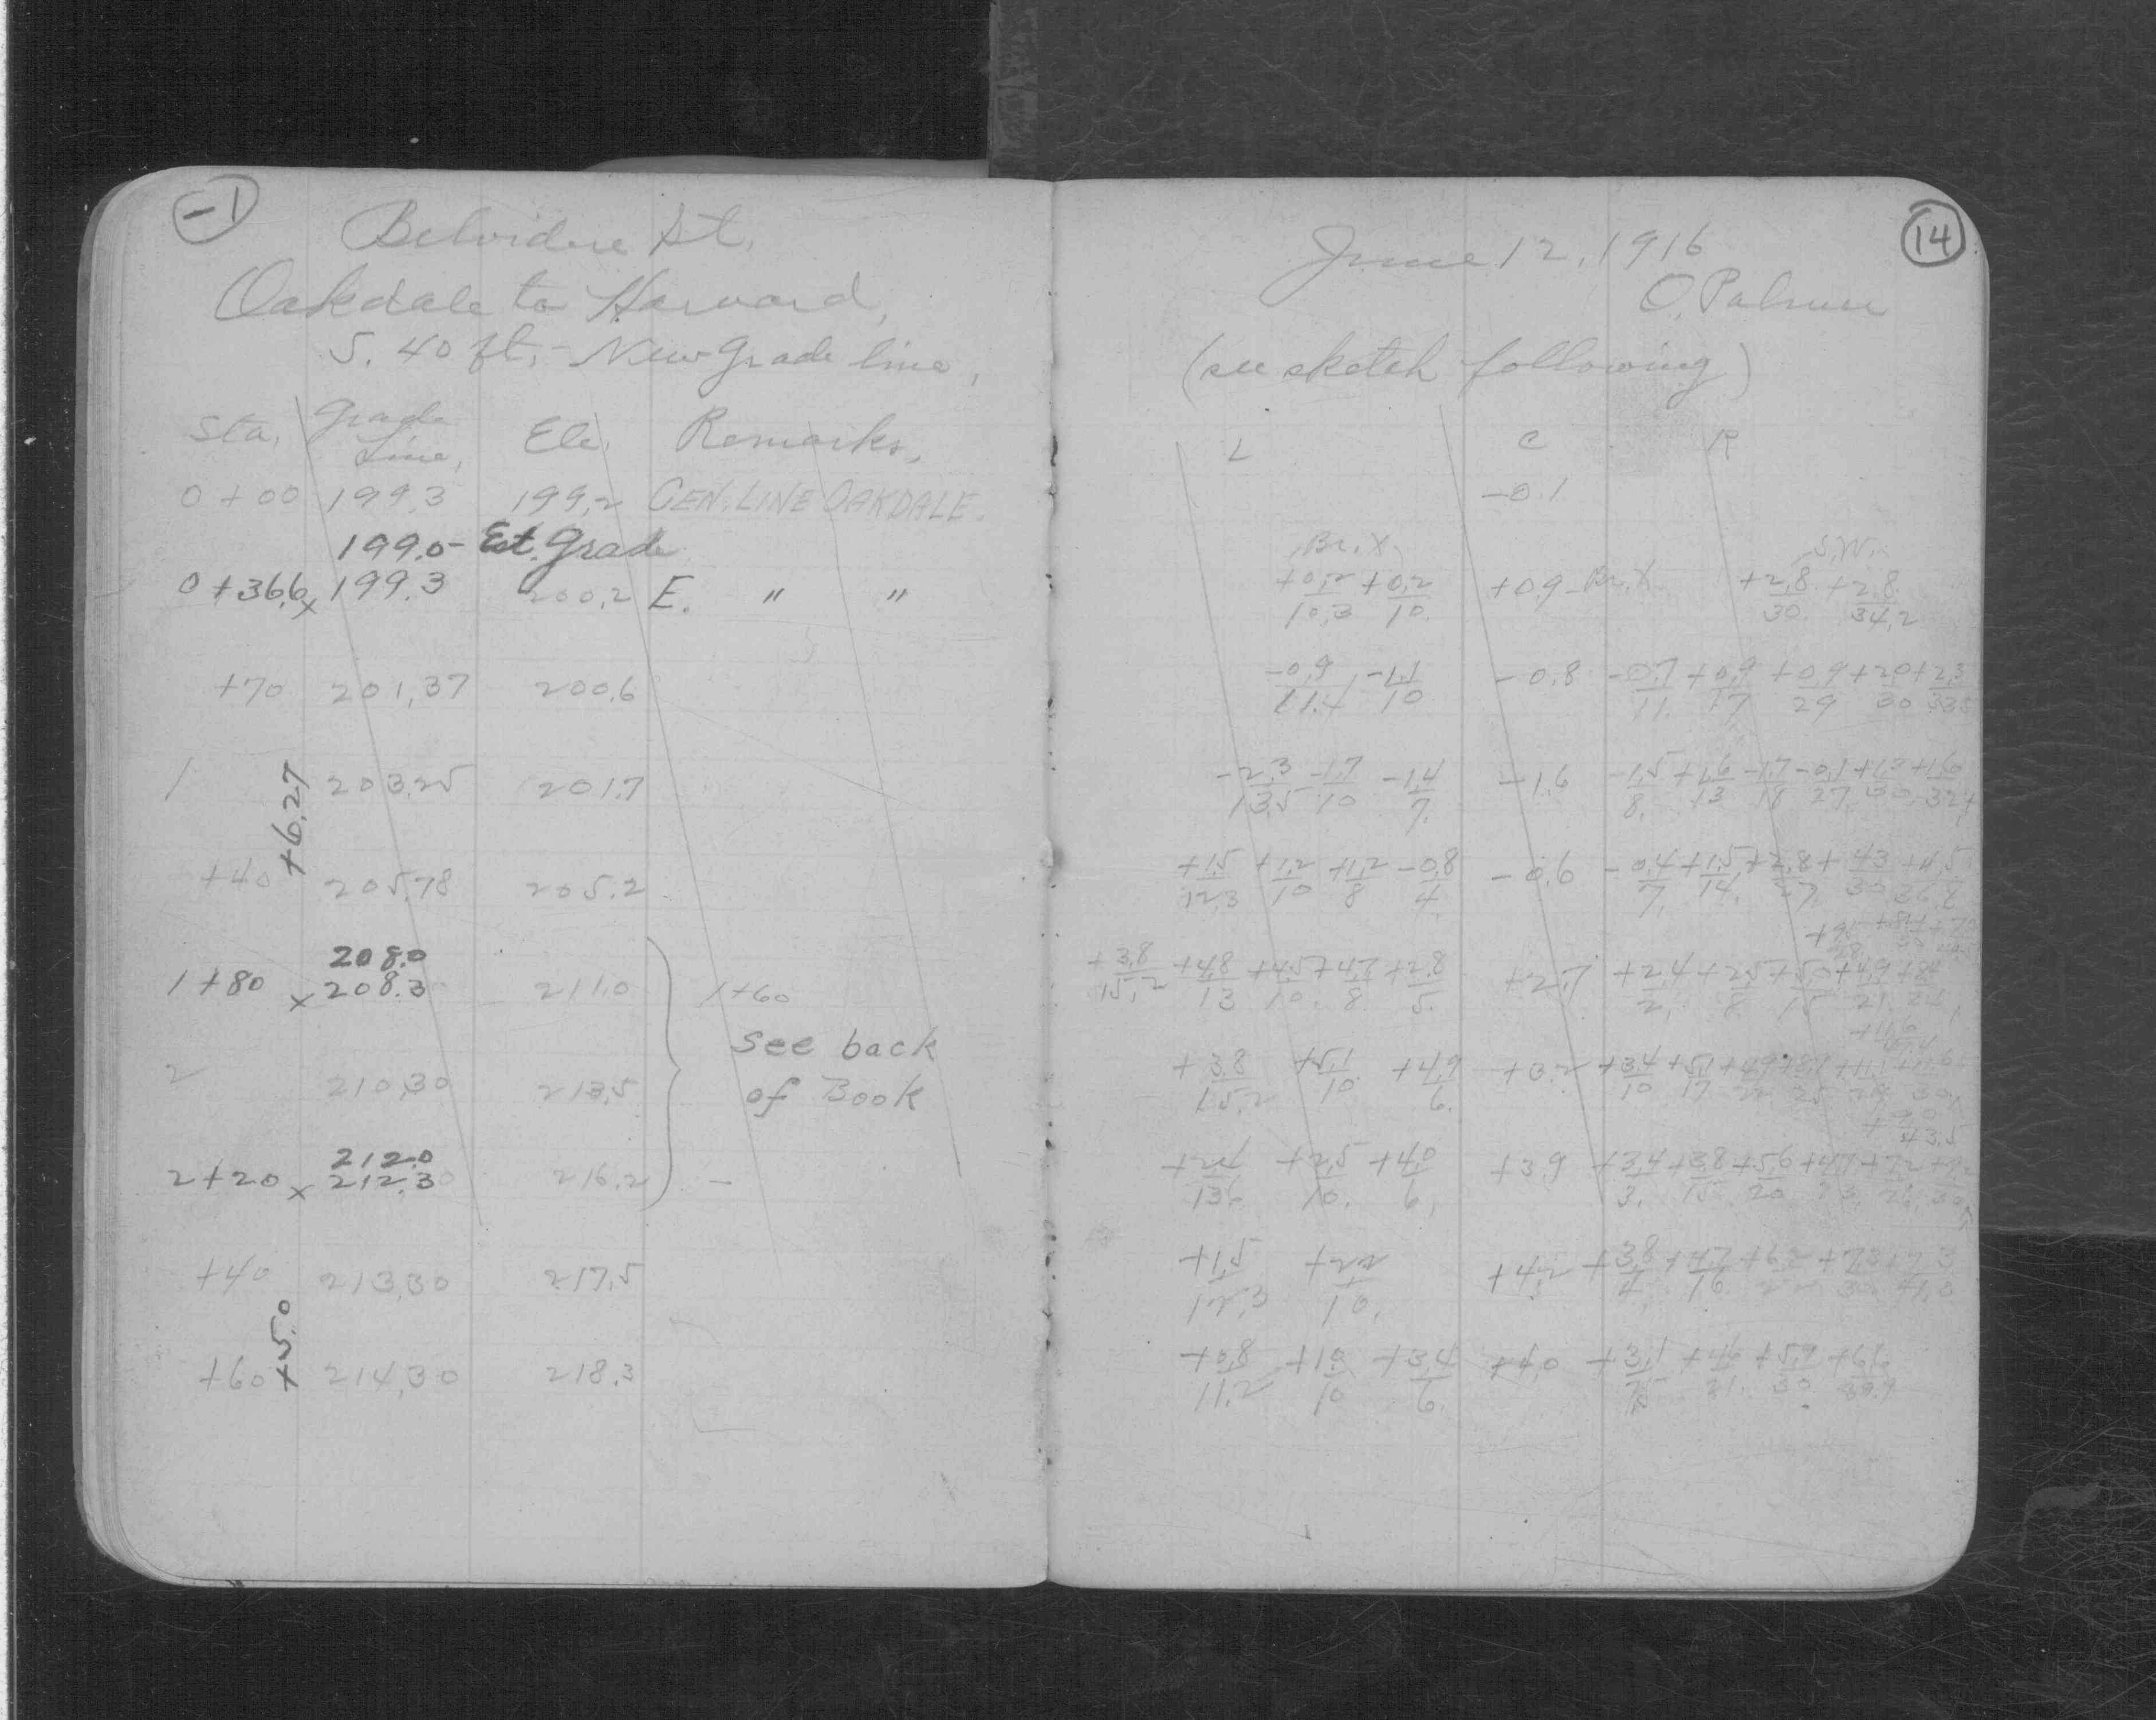 -1
Belvidere St.
Oakdale to Harvard,
S. 40 ft, - New Grade line,
Sta. Grade Line, Ele. Remarks,
0+00 199.3 199.2 CEN. LINE OAKDALE.
199.0 - Est. Grade
0+36.6 x 199.3 200.2 E. " "
+70 201.37 200.6
1 203.25 201.7
+6.27
+40 205.78 205.2
208.0
1+80 x 208.30 211.0 1+60
see back
2 210.30 213.5 of Book
212.0
2+20 x 212.30 216.2 -
+40 213.30 217.5
+5.0
+60 214.30 218.3
14
June 12, 1916
O. Palmer
(see sketch following)
L C R
-0.1
Br.X. S.W.
+0.2/10.3 +0.2/10. +0.9 - Br.X. +2.8/30. +2.8/34.2
-0.9/11.4 -1.1/10 -0.8 -0.7/11. +0.9/17 +0.9/29 +2.0/30
-2.3/13.5 -1.7/10 -1.4/7. -1.6 -1.5/8. +1.6/13 -1.7/18 -0.1/27. +1.6/32.4
+1.5/12.3 +1.2/10 +1.2/8 -0.8/4. -0.6 -0.4/7. +1.5/14. +4.3/30
+3.8/15.2 +4.8/13 +4.5/10. +4.7/8. +2.8/5. +2.7 +2.4/2. +2.5/8. +5.0/15 +4.9/21.
+3.8/15.2 +5.1/10. +4.9/6. +3.2 +3.4/10 +5.1/17 +4.9/22
+2.5/10. +4.0/6. +3.9 +3.4/3. +3.8/15 +5.6/20
+1.5/12.3 +2.2/10. +4.2 +3.8/4. +4.7/16
+0.8/11.2 +1.0/10 +3.4/6. +4.0 +4.6/21. +5.9/30